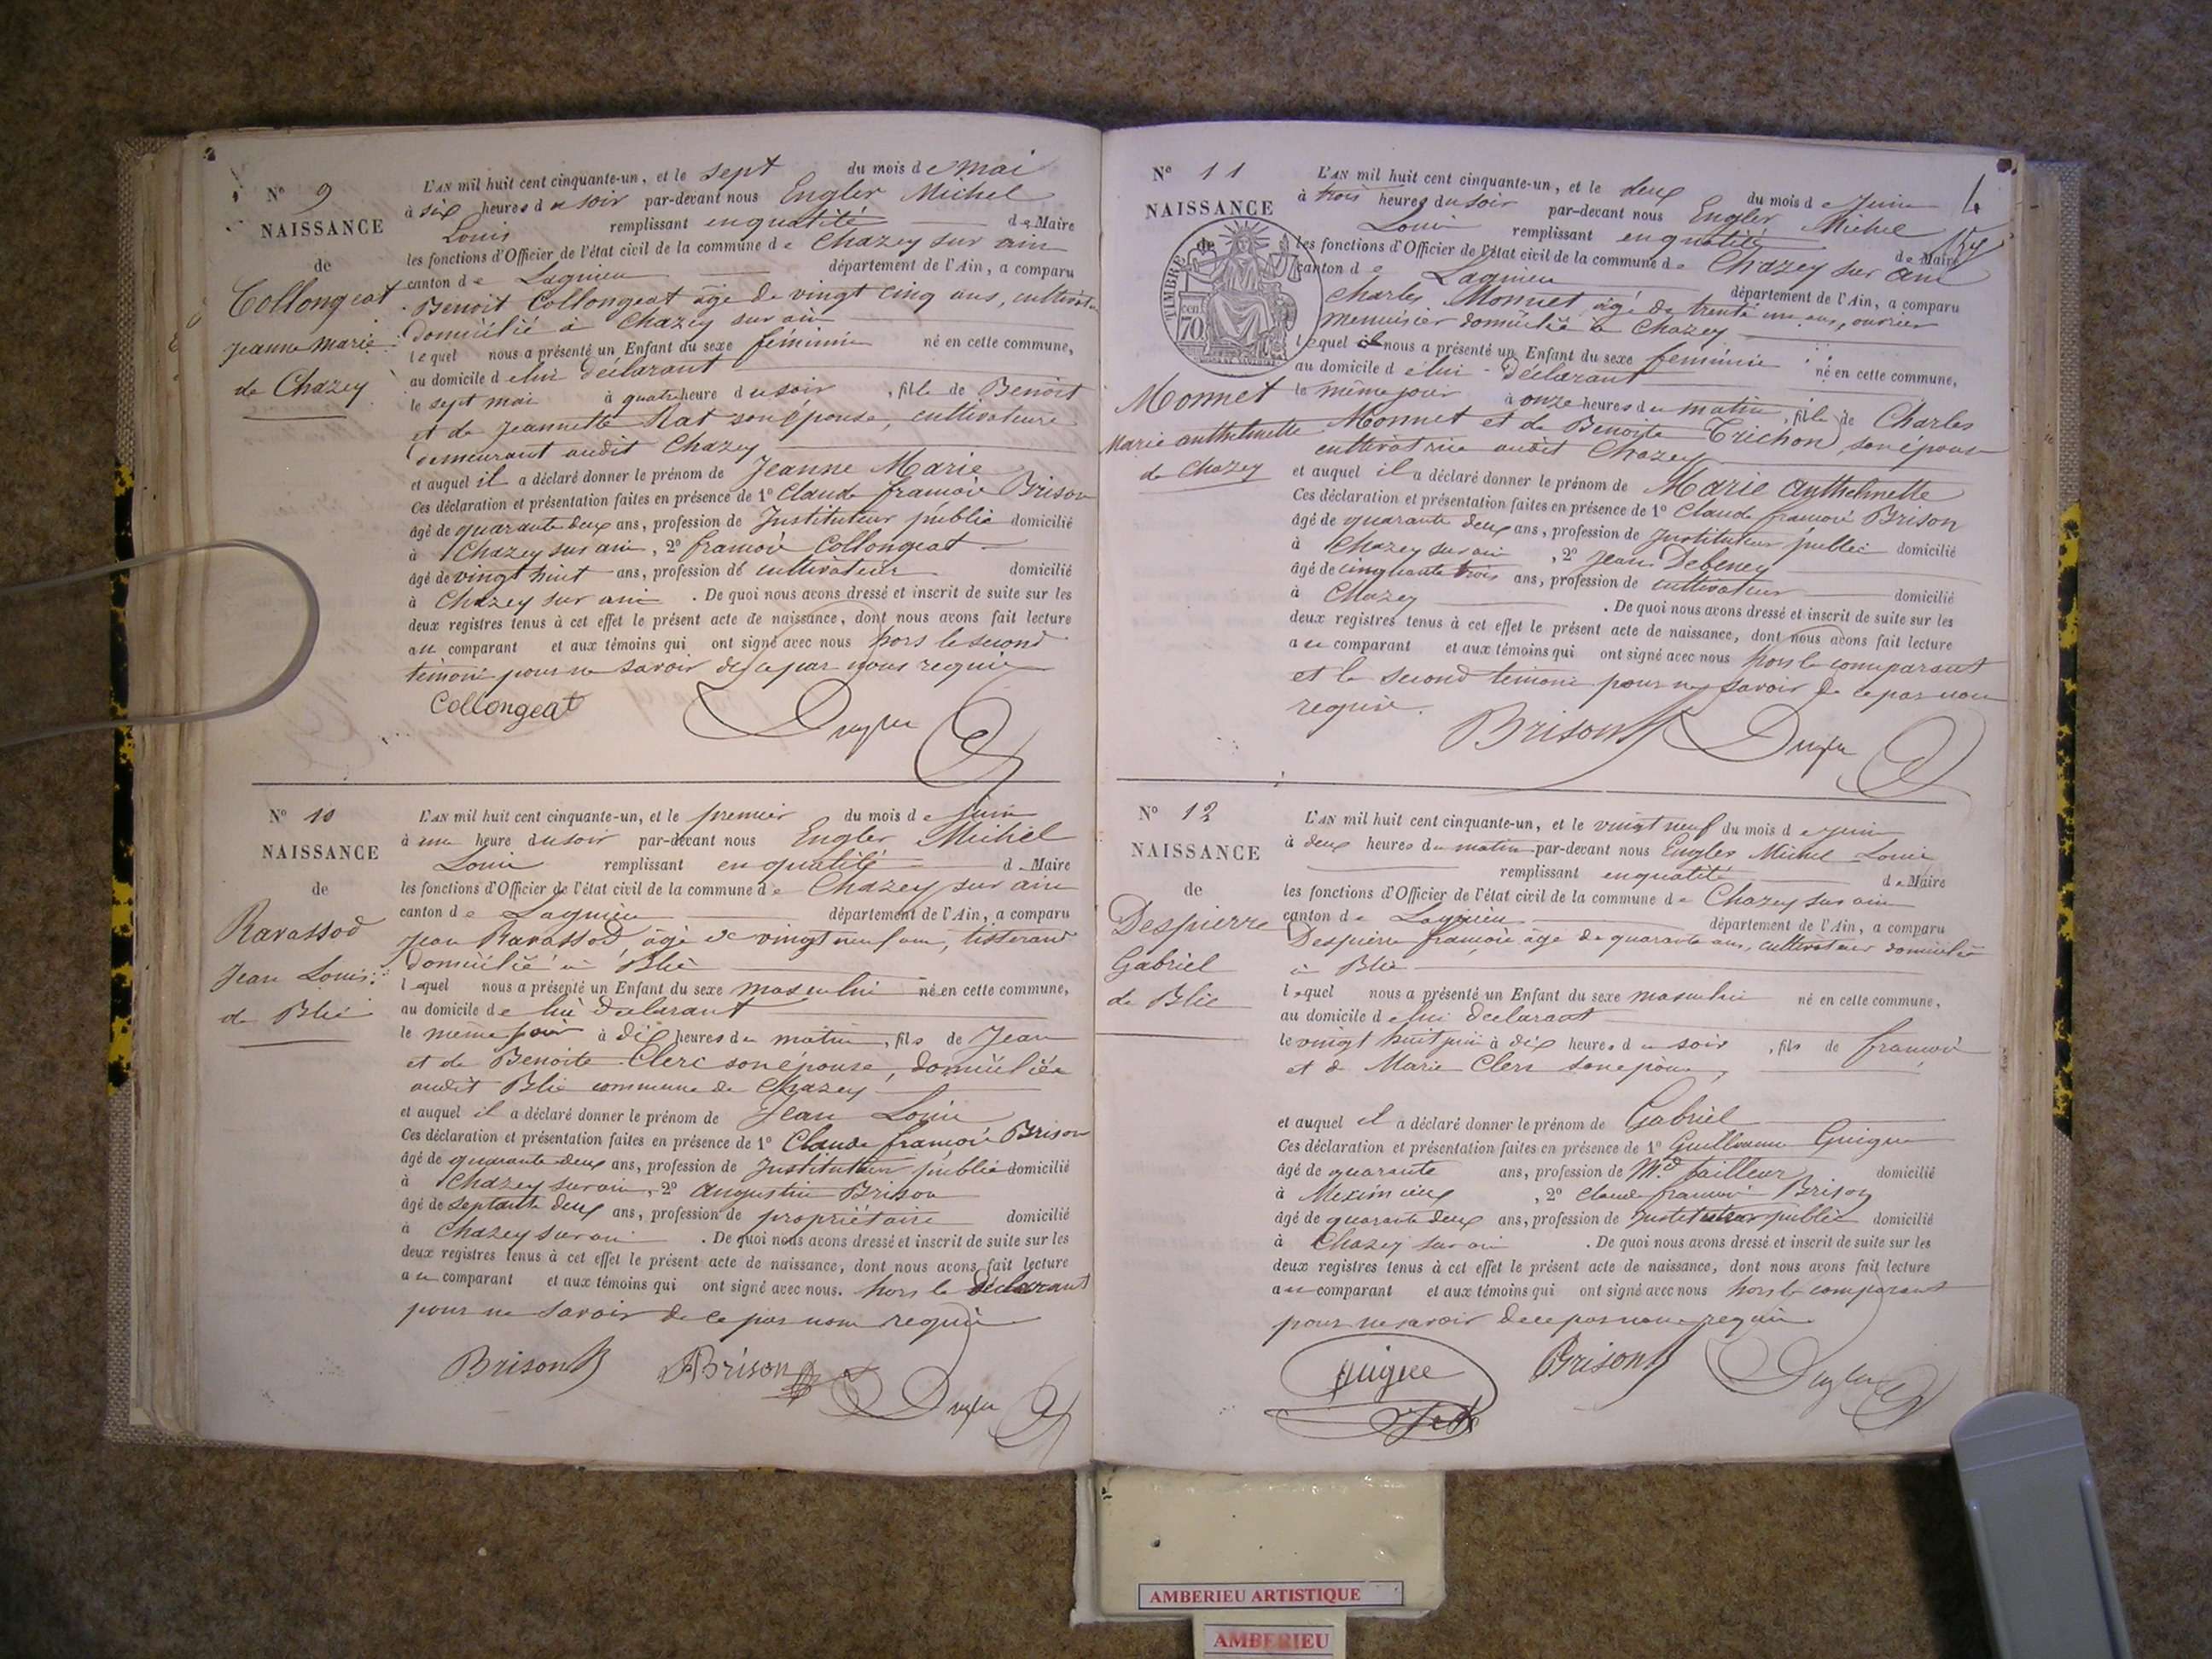 N° 9
NAISSANCE
de
Collongeat
Jeanne Marie
de Chazey
L'AN mil huit cent cinquante-un, et le sept du mois de mai
à six heures du soir par-devant nous Engler Michel
Louis remplissant en qualité de Maire
les fonctions d'Officier de l'état civil de la commune de Chazey sur ain
canton de Lagnieu département de l'Ain, a comparu
Benoit Collongeat âgé de vingt cinq ans, cultivateur
domicilié à Chazey sur ain
lequel nous a présenté un Enfant du sexe féminin né en cette commune,
au domicile de lui déclarant
le sept mai à quatre heure du soir, fille de Benoit
et de Jeannette Rat son épouse, cultivateurs
demeurant audit Chazey
et auquel il a déclaré donner le prénom de Jeanne Marie
Ces déclaration et présentation faites en présence de 1° Claude françois Brison
âgé de quarante deux ans, profession de Instituteur public domicilié
à Chazey sur ain, 2° françois Collongeat
âgé de vingt huit ans, profession de cultivateur domicilié
à Chazey sur ain. De quoi nous avons dressé et inscrit de suite sur les
deux registres tenus à cet effet le présent acte de naissance, dont nous avons fait lecture
au comparant et aux témoins qui ont signé avec nous hors le second
témoin pour ne savoir de ce par nous requis
Collongeat
N° 10
NAISSANCE
de
Ravassod
Jean Louis
de Blié
L'AN mil huit cent cinquante-un, et le premier du mois de juin
à une heure du soir par-devant nous Engler Michel
Louis remplissant en qualité de Maire
les fonctions d'Officier de l'état civil de la commune de Chazey sur ain
canton de Lagnieu département de l'Ain, a comparu
Jean Ravassod âgé de vingt neuf ans, tisserand
domicilié à Blié
lequel nous a présenté un Enfant du sexe masculin né en cette commune,
au domicile de lui déclarant
le même jour à dix heures du matin, fils de Jean
et de Benoite Clerc son épouse, domiciliée
audit Blié commune de Chazey
et auquel il a déclaré donner le prénom de Jean Louis
Ces déclaration et présentation faites en présence de 1° Claude françois Brison
âgé de quarante deux ans, profession de Instituteur public domicilié
à Chazey sur ain, 2° Augustin Brison
âgé de septante deux ans, profession de propriétaire domicilié
à Chazey sur ain. De quoi nous avons dressé et inscrit de suite sur les
deux registres tenus à cet effet le présent acte de naissance, dont nous avons fait lecture
au comparant et aux témoins qui ont signé avec nous. hors le déclarant
pour ne savoir de ce par nous requis
Brison ABrison
N° 11
NAISSANCE
de
TIMBRE
cen
70
Monnet
Marie anthelmette
de Chazey
L'AN mil huit cent cinquante-un, et le deux du mois de Juin
à trois heures du soir par-devant nous Engler Michel
Louis remplissant en qualité de Maire
les fonctions d'Officier de l'état civil de la commune de Chazey sur ain
canton de Lagnieu département de l'Ain, a comparu
Charles Monnet âgé de trente un ans, ouvrier
menuisier domicilié à Chazey
lequel nous a présenté un Enfant du sexe féminin né en cette commune,
au domicile de lui déclarant
le même jour à onze heures du matin, fille de Charles
Monnet et de Benoite Trichon, son épouse
cultivatrice audit Chazey
et auquel il a déclaré donner le prénom de Marie Anthelmette
Ces déclaration et présentation faites en présence de 1° Claude françois Brison
âgé de quarante deux ans, profession de Instituteur public domicilié
à Chazey sur ain, 2° Jean Debeney
âgé de cinquante trois ans, profession de cultivateur domicilié
à Chazey. De quoi nous avons dressé et inscrit de suite sur les
deux registres tenus à cet effet le présent acte de naissance, dont nous avons fait lecture
au comparant et aux témoins qui ont signé avec nous hors le comparant
et le second témoin pour ne savoir de ce par nous
requis.
Brison
N° 12
NAISSANCE
de
Despierre
Gabriel
de Blié
L'AN mil huit cent cinquante-un, et le vingt neuf du mois de juin
à deux heures du matin par-devant nous Engler Michel Louis
remplissant en qualité de Maire
les fonctions d'Officier de l'état civil de la commune de Chazey sur ain
canton de Lagnieu département de l'Ain, a comparu
Despierre françois âgé de quarante ans, cultivateur domicilié
à Blié
lequel nous a présenté un Enfant du sexe masculin né en cette commune,
au domicile de lui déclarant
le vingt huit juin à dix heures du soir, fils de françois
et de Marie Clerc son épouse,
et auquel il a déclaré donner le prénom de Gabriel
Ces déclaration et présentation faites en présence de 1° Guillaume Guigue
âgé de quarante ans, profession de Md tailleur domicilié
à Meximieux, 2° Claude françois Brison
âgé de quarante deux ans, profession de Instituteur public domicilié
à Chazey sur ain. De quoi nous avons dressé et inscrit de suite sur les
deux registres tenus à cet effet le présent acte de naissance, dont nous avons fait lecture
au comparant et aux témoins qui ont signé avec nous hors le comparant
pour ne savoir de ce par nous requis
guigue Brison
AMBERIEU ARTISTIQUE
AMBERIEU